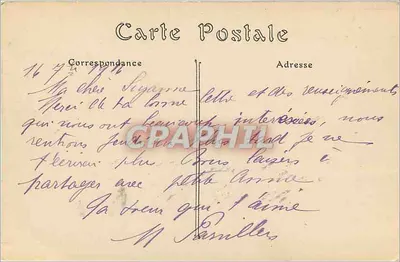 Carte Postale
Correspondance
Adresse
16 7 1916
Ma chère Suzanne
Merci de ta bonne lettre et des renseignements
qui nous ont beaucoup intéressés, nous
rentrons je ne
t'écrirai plus. Bons baisers à
partager avec petite Anna
Ta sœur qui t'aime
M
GRAPHIL